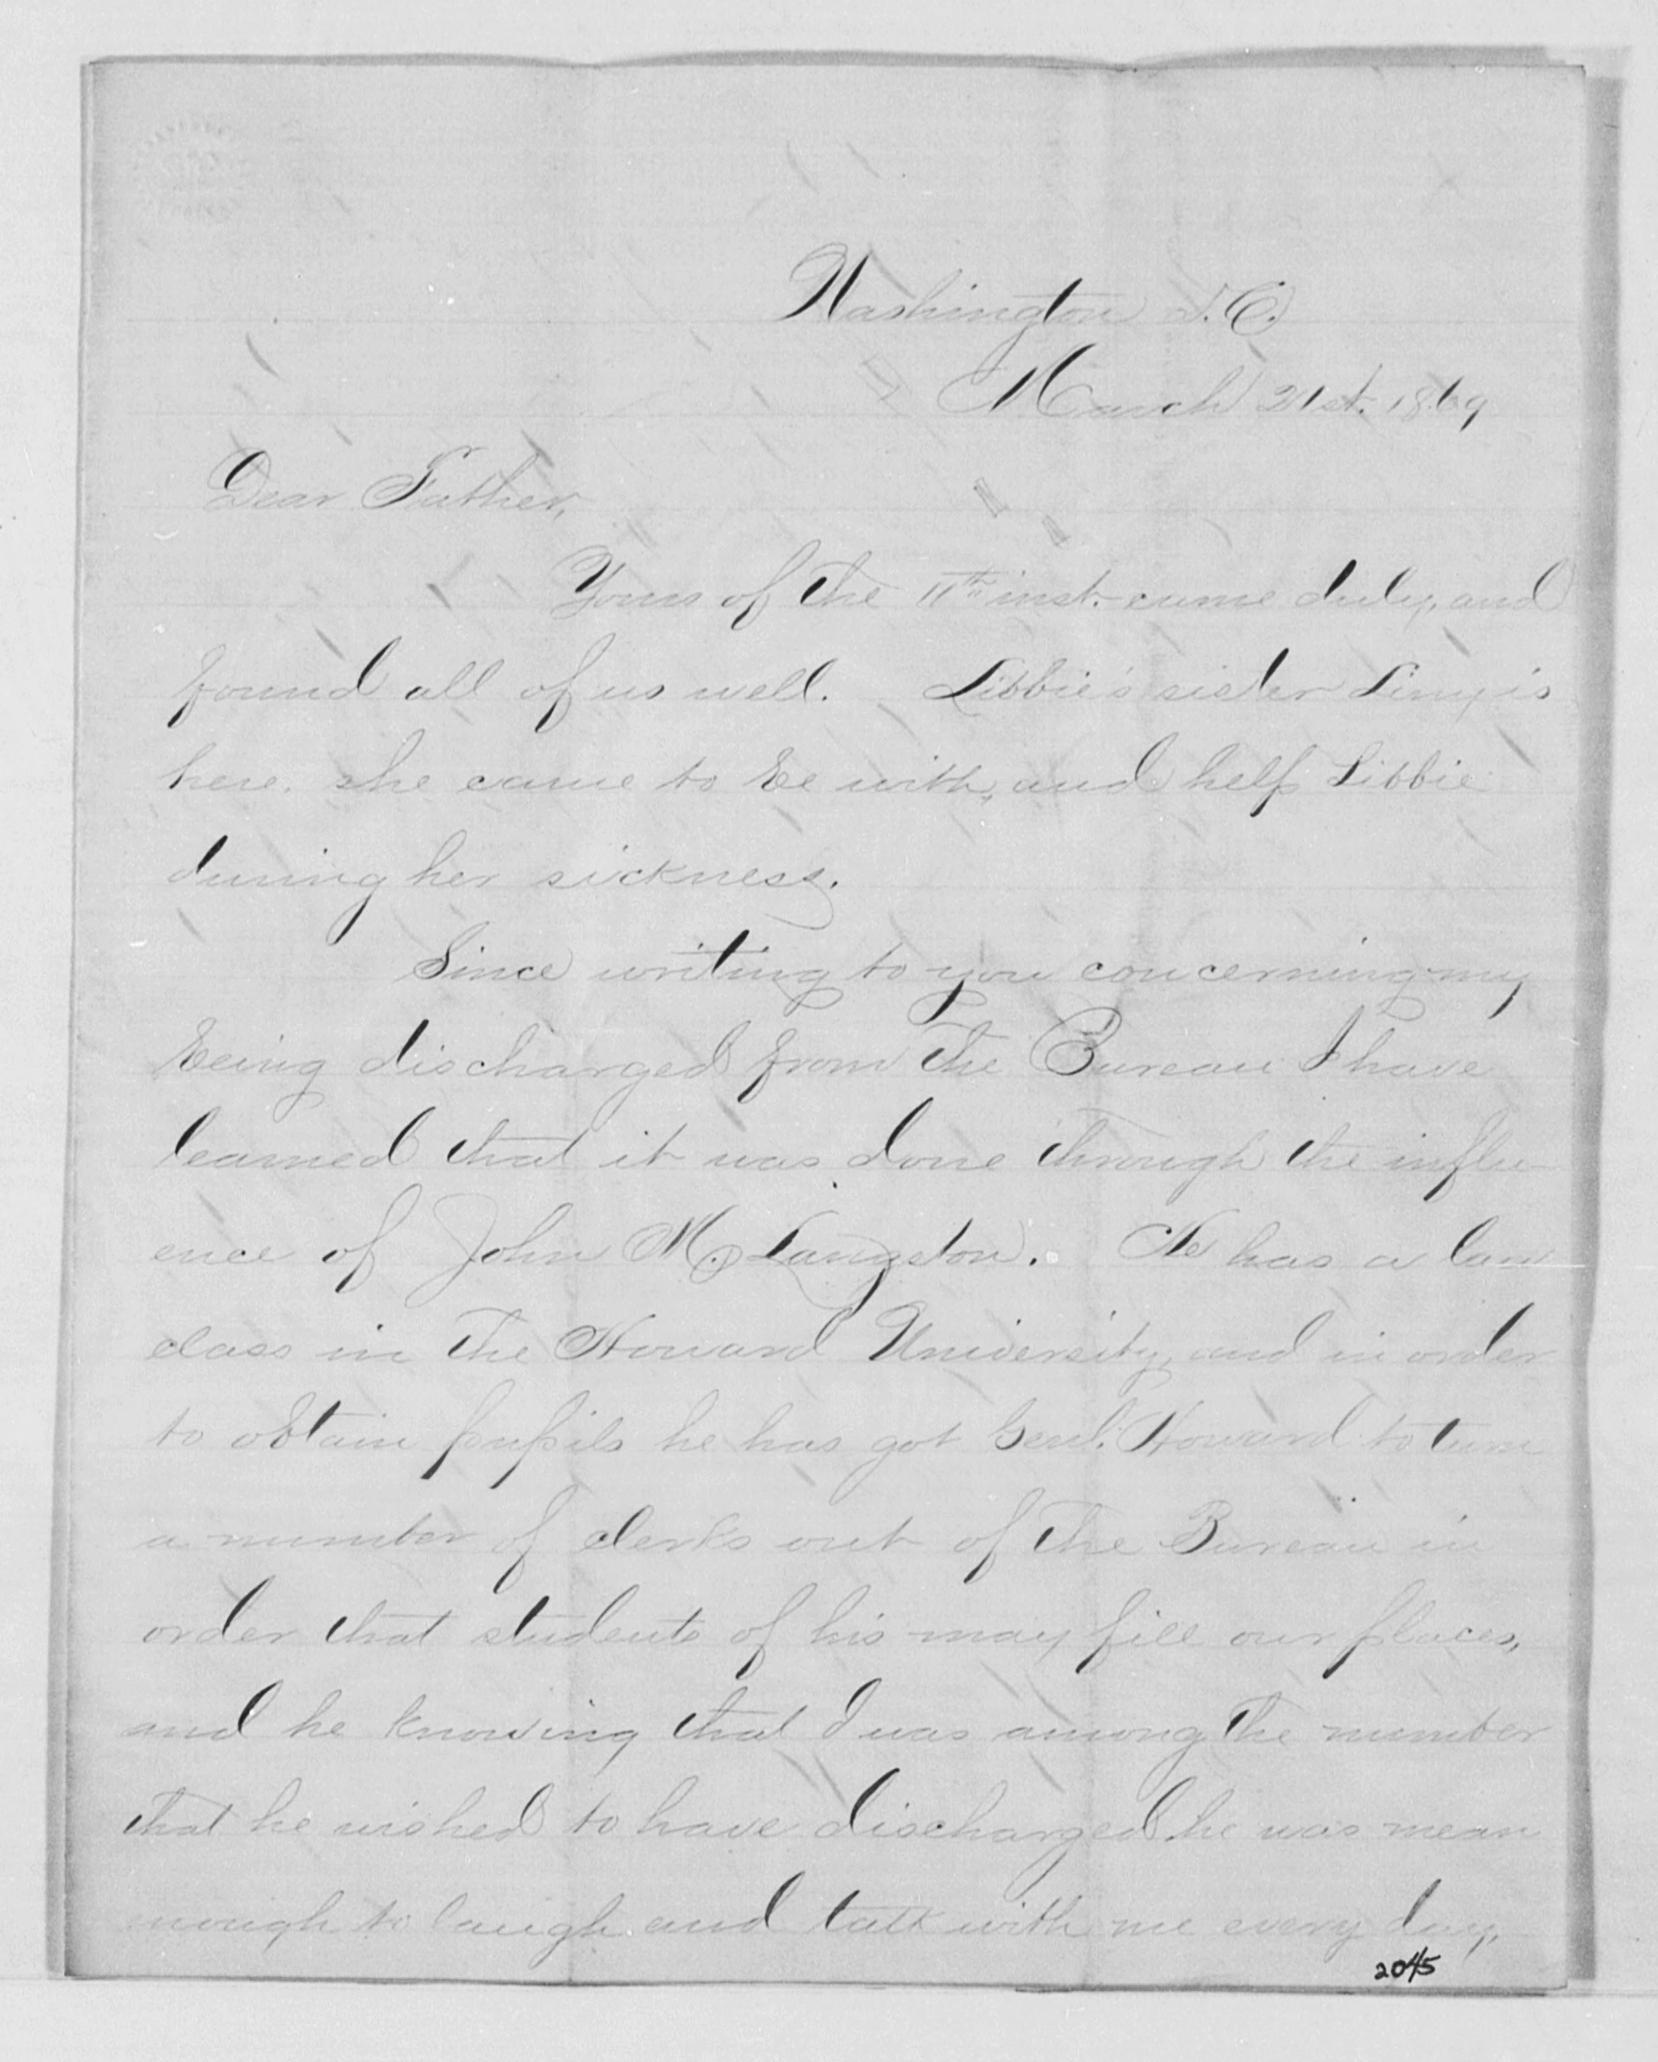 Washington D.C.
March 21st. 1869
Dear Father,
Yours of the 11th inst. came duly, and
found all of us well. Libbie's sister is
here. she came to be with, and help Libbie
during her sickness.
Since writing to you concerning my
being discharged from the Bureau I have
learned that it was done through the influ-
ence of John M. Langston. He has a law
class in the Howard University, and in order
to obtain pupils he has got Genl. Howard to turn
a number of clerks out of the Bureau in
order that students of his may fill our places,
and he knowing that I was among the number
that he wished to have discharged, he was mean
enough to laugh and talk with me every day,
2045